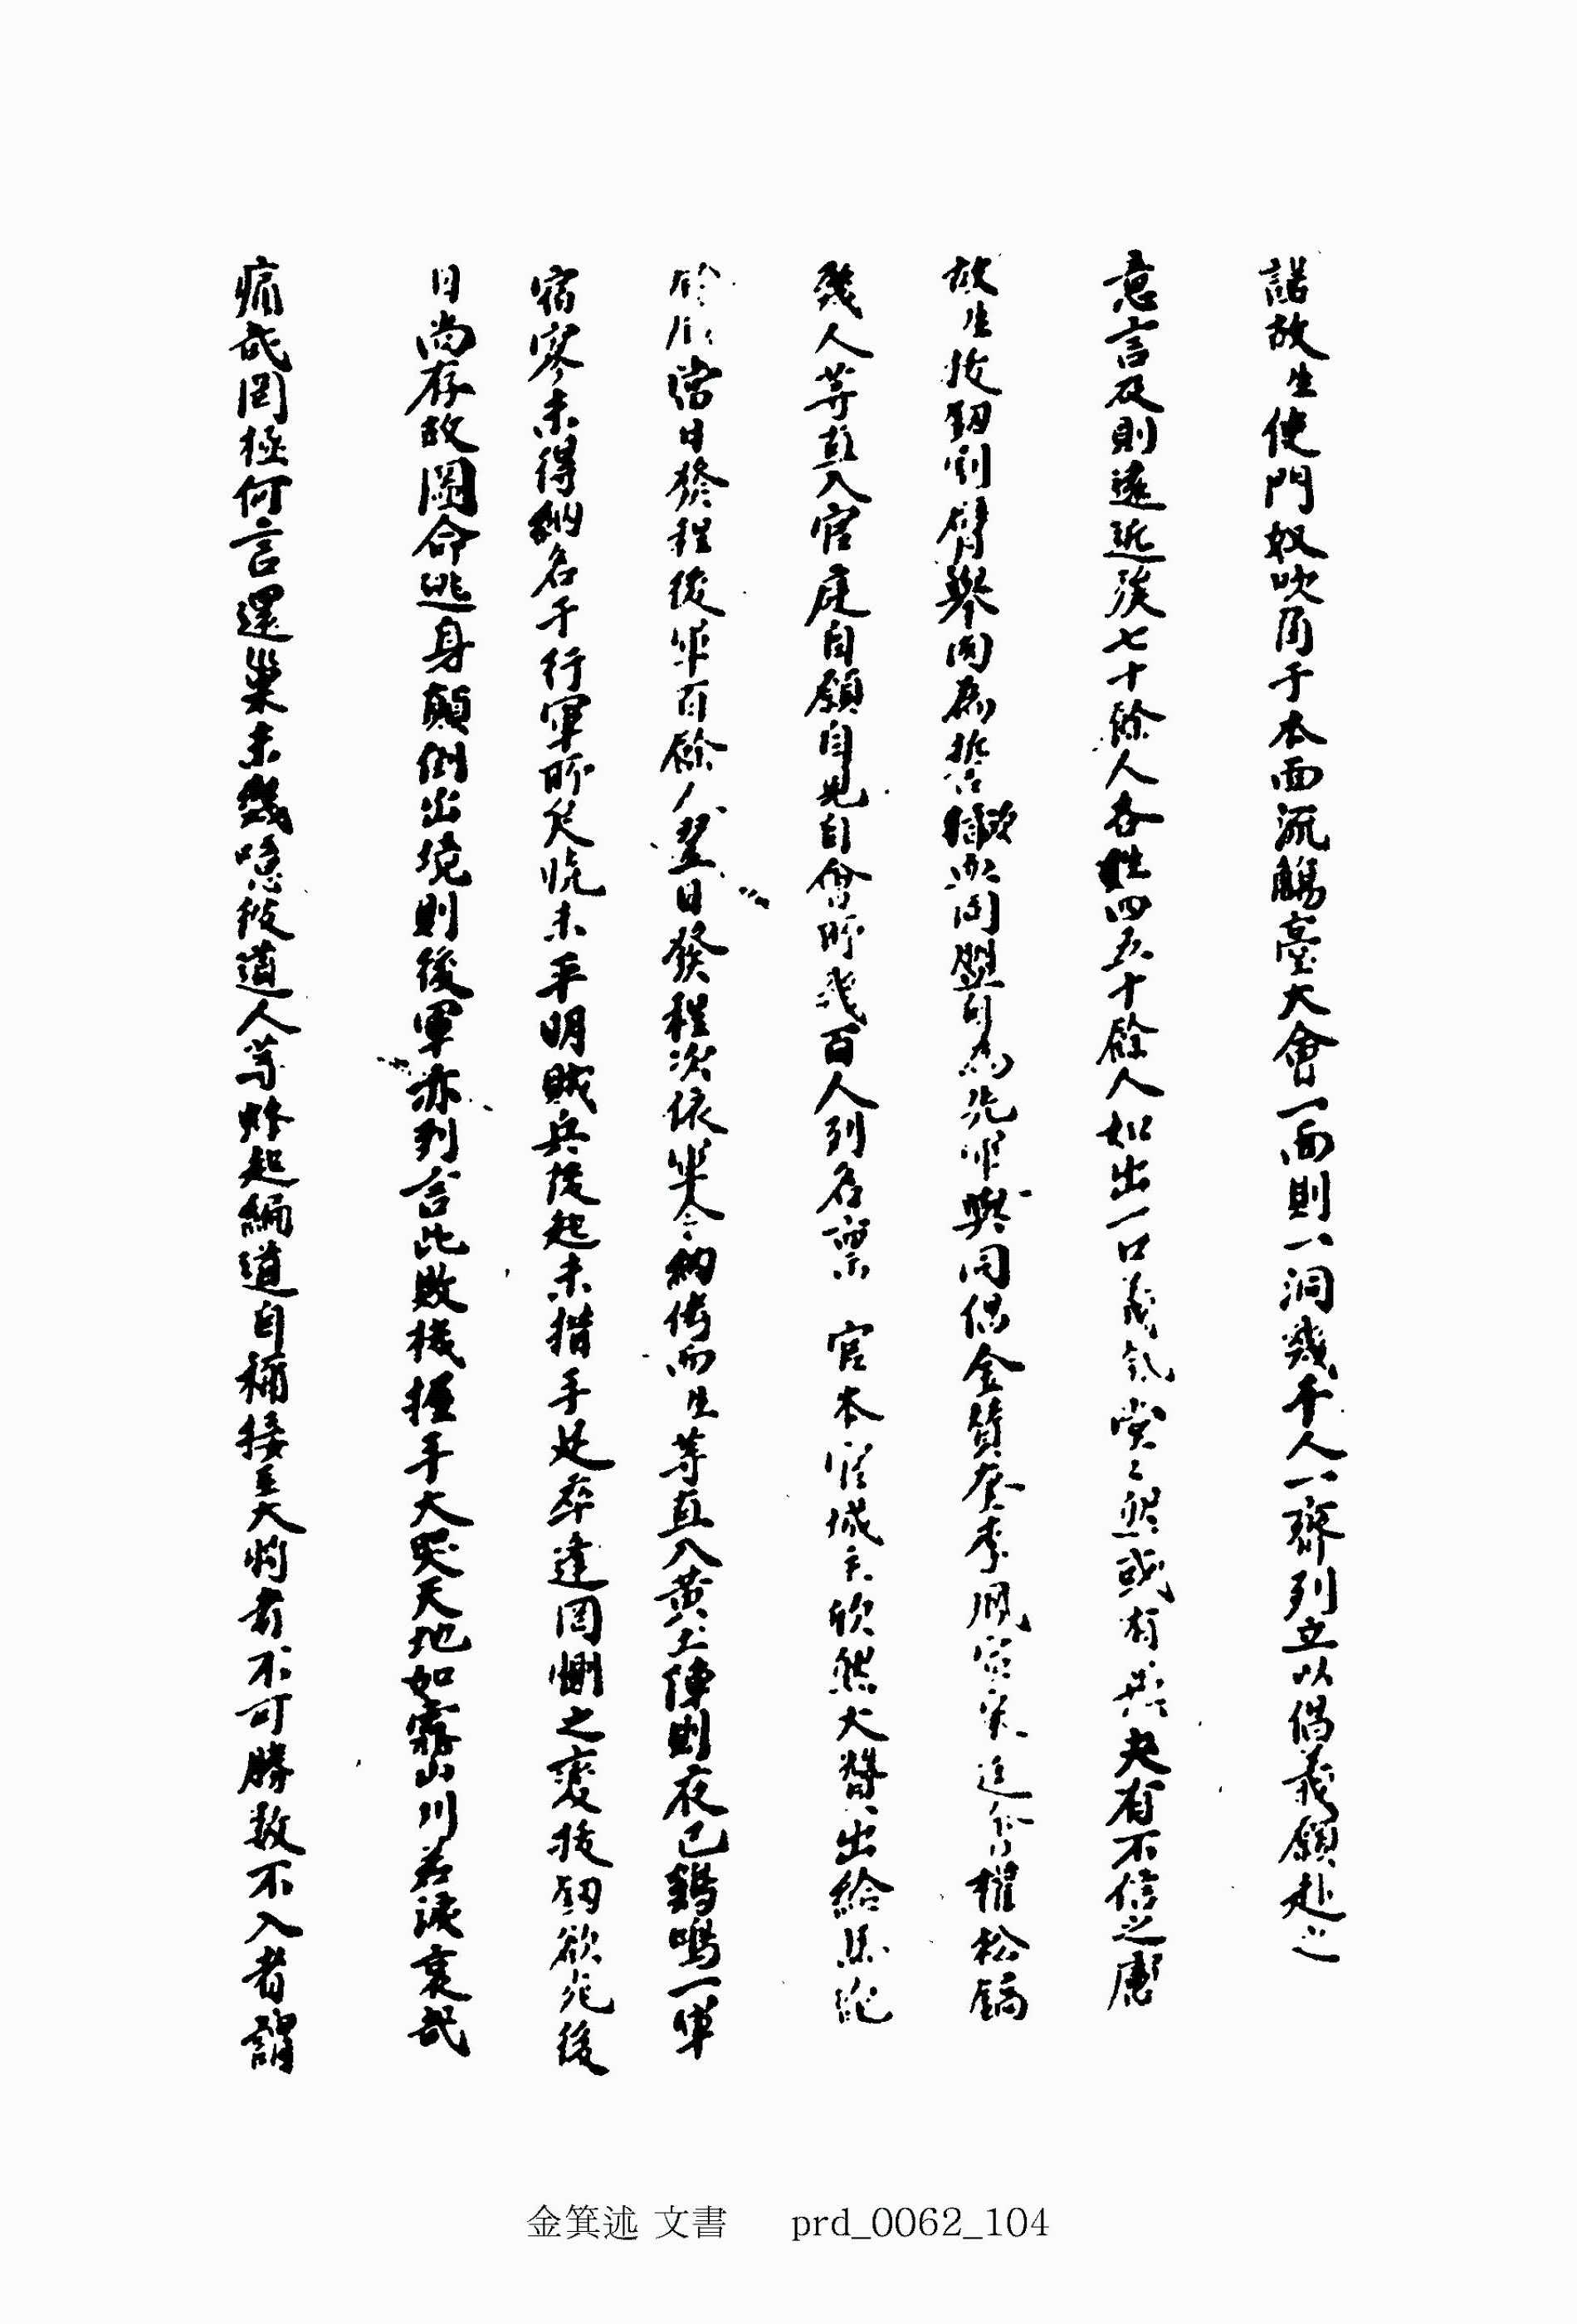 諾故生使門奴吹角于本面流觴臺大會一面則一洞幾千人一齊列立以倡義願赴之
意言及則遠近族七十餘人各姓四五十餘人如出一口義氣堂〻然或有與夫有不信之慮
故生拔釰割臂擧肉爲誓歃血同盟自爲先鋒與同倡金贊奎李周宗宋進會權松鎬
幾人等直入官庭自願自見自會所幾百人列名稟 官本官城主欣然大贊出給馬
當日發程後軍百餘人翌日發程次依軍令納傳而生等直入黃土陣則夜已鷄鳴一軍
宿寥未得納名于行軍所矣晩未平明賊兵後起未措手足卒逢罔惻之變拔釰欲死後
日尚存故圖命逃身顛倒出境則後軍亦到言此敗機握手大哭天地如窄山川若淚哀哉
痛哉罔極何言還巢未幾噫彼道人等蜂起編道自稱接主大將者不可勝數不入者謂
金箕述 文書 prd_0062_104